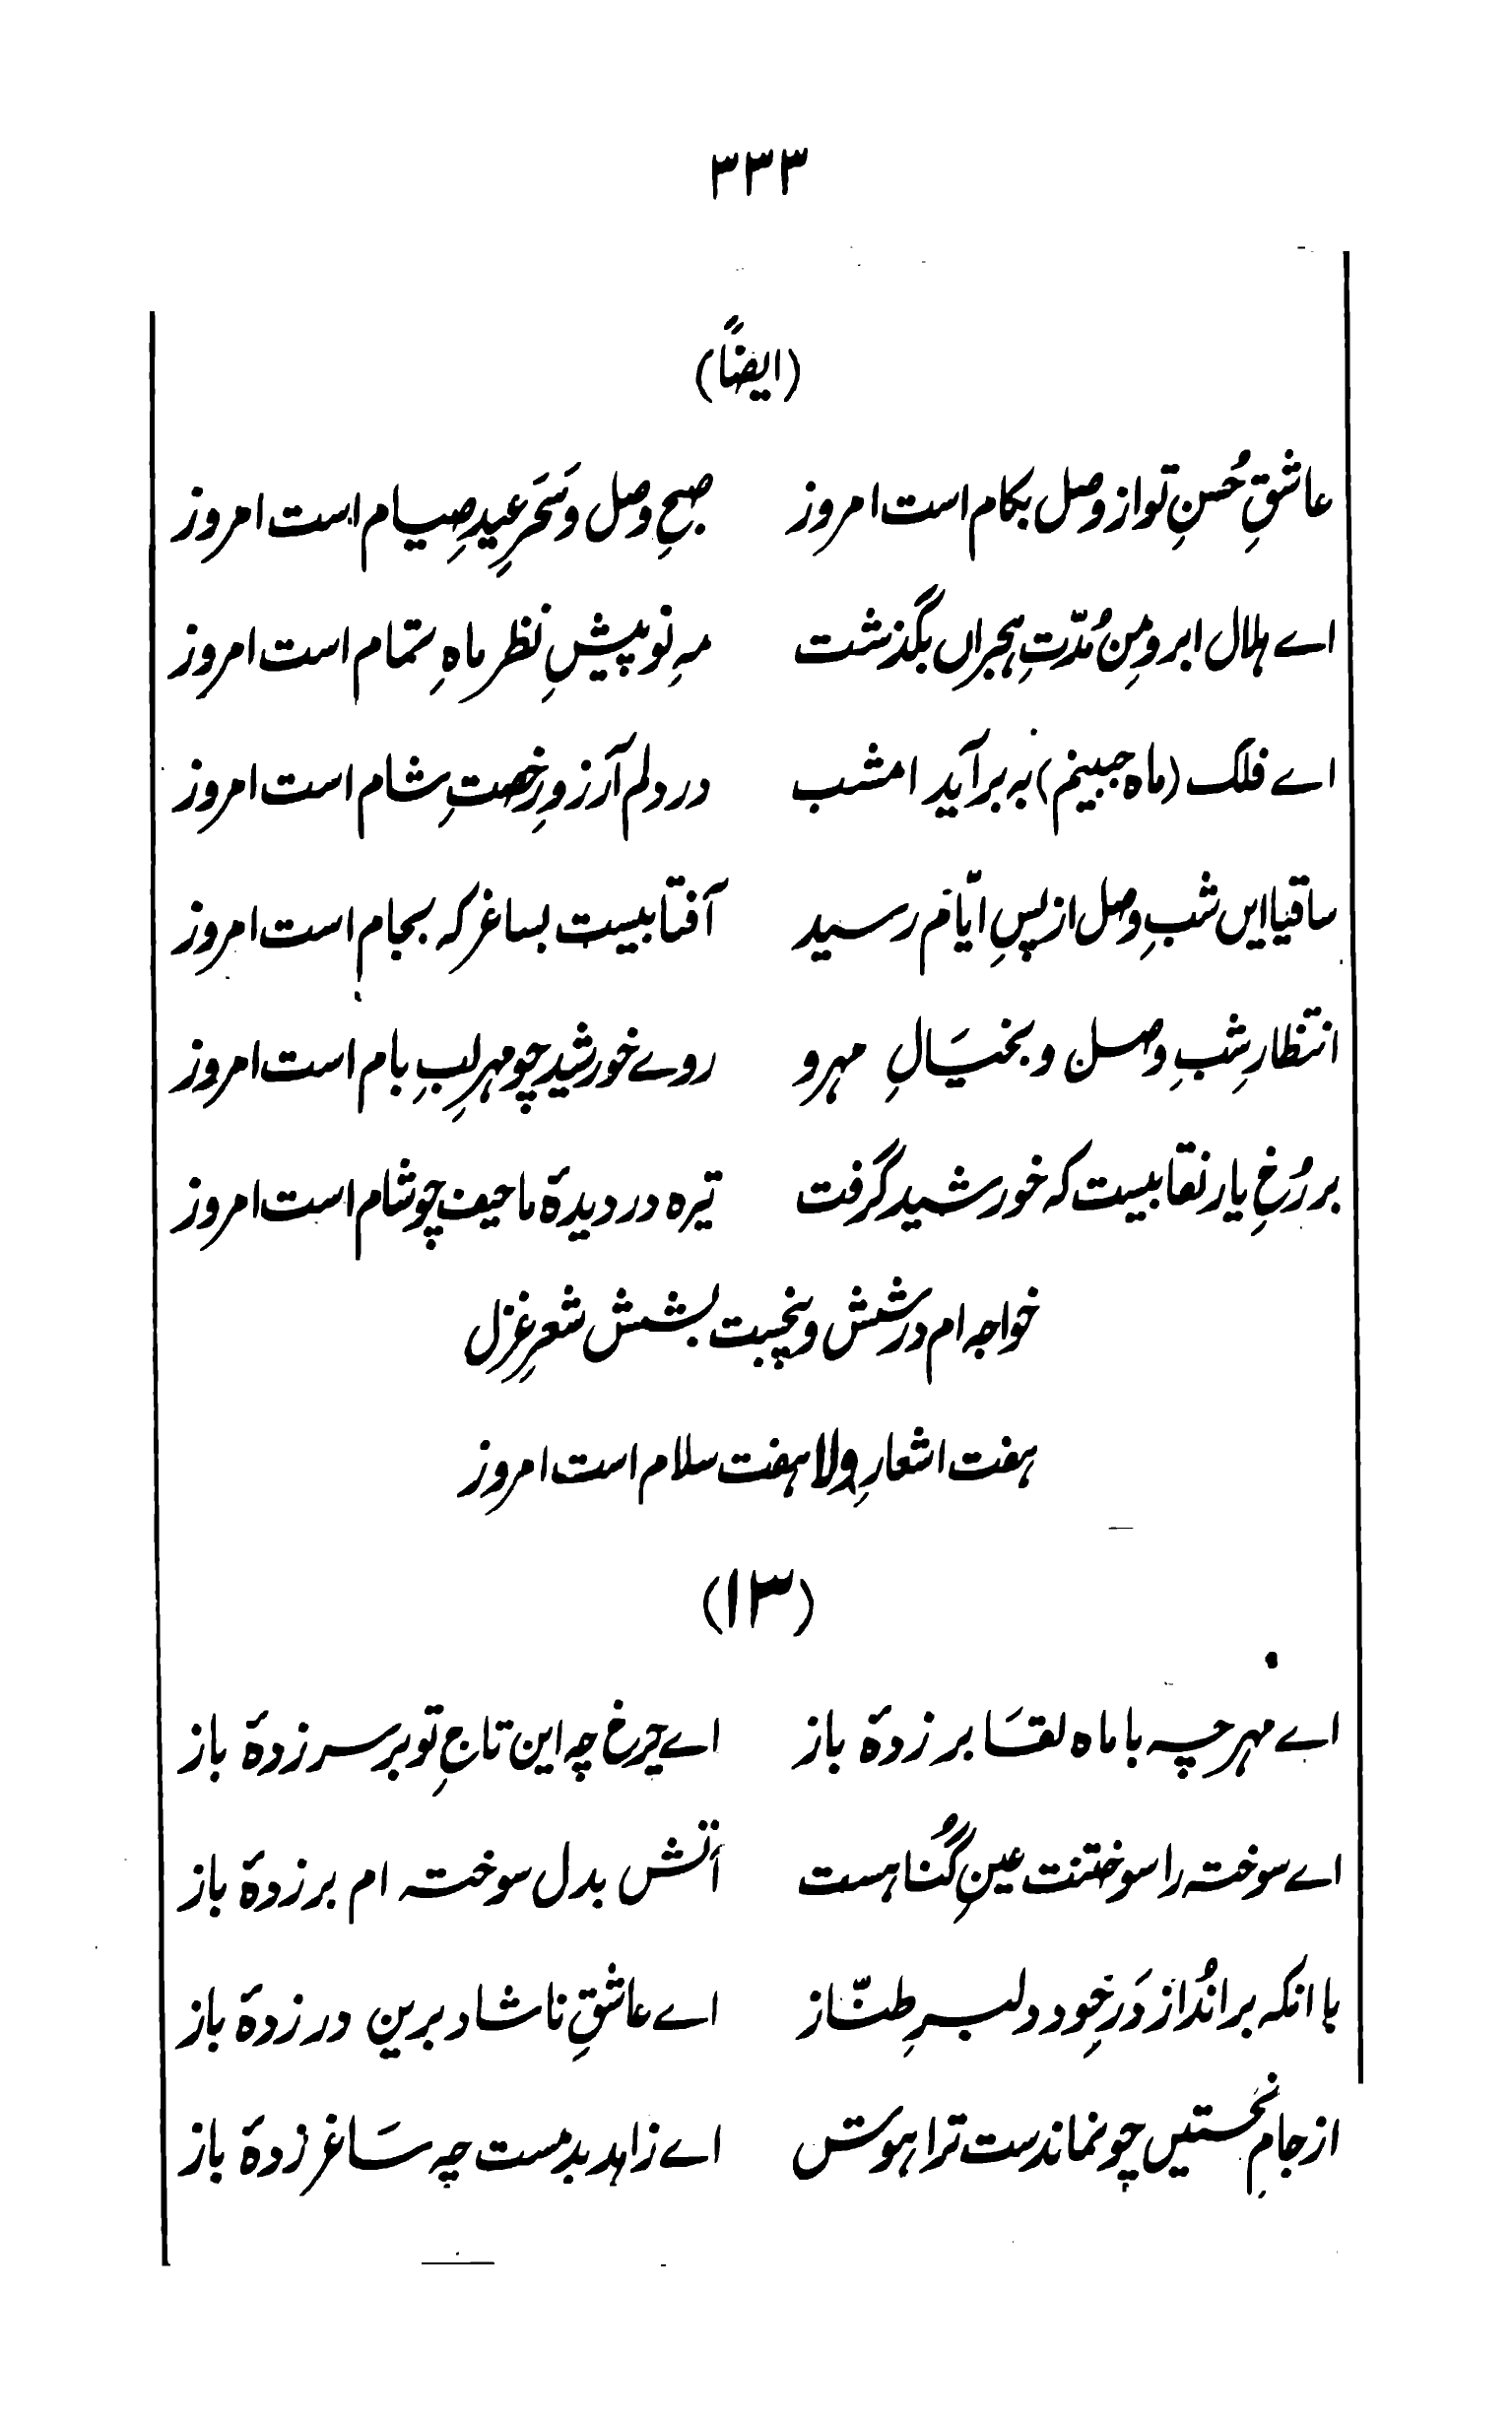 ۳۳۳
(ایضاً)
عاشقِ حُسنِ تو از وصل بکام است امروز صبحِ وصل و سَحَرِ عیدِ صِیام است امروز
اے ہلال ابروِ من مُدّتِ ہجراں بگذشت مہِ نو پیشِ نظر ماہِ تمام است امروز
اے فلک (ماہ جبینم) نہ برآید امشب در دلم آرزوِ رخصتِ شام است امروز
ساقیا ایں شبِ وصل از پسِ ایّام رسید آفتابیست بساغر کہ بجام است امروز
انتظارِ شبِ وصل و بخیَالِ مہرو روے خورشید چو مہرِ لبِ بام است امروز
بر رُخِ یار نقابیست کہ خورشید گرفت تیرہ در دیدۂ ما حیف چو شام است امروز
خواجہ ام در شش و پنجست بشش شعرِ غزل
ہفت اشعارِ ولا ہفت سلام است امروز
(۱۳)
اے مہر چہ با ماہ لقَا بر زدۂ باز اے چرخ چہ این تاجِ تو بر سر زدۂ باز
اے سوختہ را سوختنت عینِ گُناہست آتش بدل سوختہ ام بر زدۂ باز
با انکہ بر انُداز دَرِ خود دلبرِ طنّاز اے عاشقِ ناشاد برین در زدۂ باز
از جامِ نخستیں چو نماندست ترا ہوش اے زاہد بدمست چہ سَاغر زدۂ باز